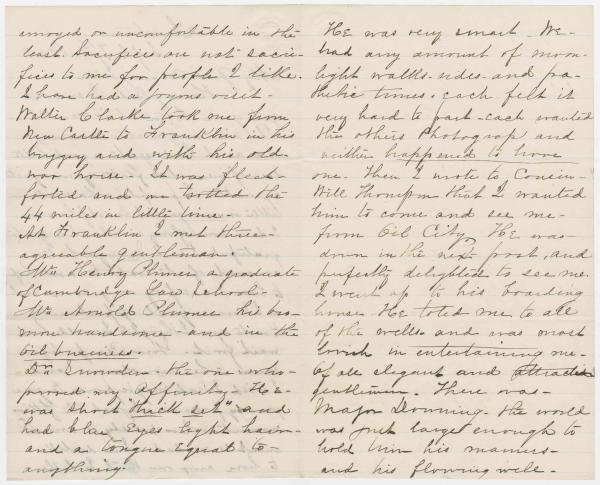 annoyed or uncomfortable in the
least. Sacrifices are not sacri-
fices to me for people I like.
I have had a joyous visit.
Walter Clarke took me from
New Castle to Franklin in his
buggy and with his old
war horse. It was fleet
footed and me trotted the
44 miles in little time.
At Franklin I met three
agreeable gentleman.
Mr. Henry Plumer a graduate
of Cambridge Law School.
Mr. Arnold Plumer his bro-
more handsome and in the
Oil business.
Dr. Snowden the one who
proved my affinity. He
was short "thick set" and
had blue eyes light hair
and a tongue equal to
anything.
He was very smart. We
had any amount of moon
light walks rides and pa-
thetic times. each felt it
very hard to part - each wanted
the others Photograp and
neither happened to have
one. Then I wrote to Cousin
Will Thompson that I wanted
him to come and see me
from Oil City. He was
down in the next post, and
perfectly delighted to see me.
I went up to his boarding
house He toted me to all
of the wells and was most
lavish in entertaining me
Of all elegant and
gentlemen. There was
Major Downing. the world
was just large enough to
hold him his manners
and his flowing